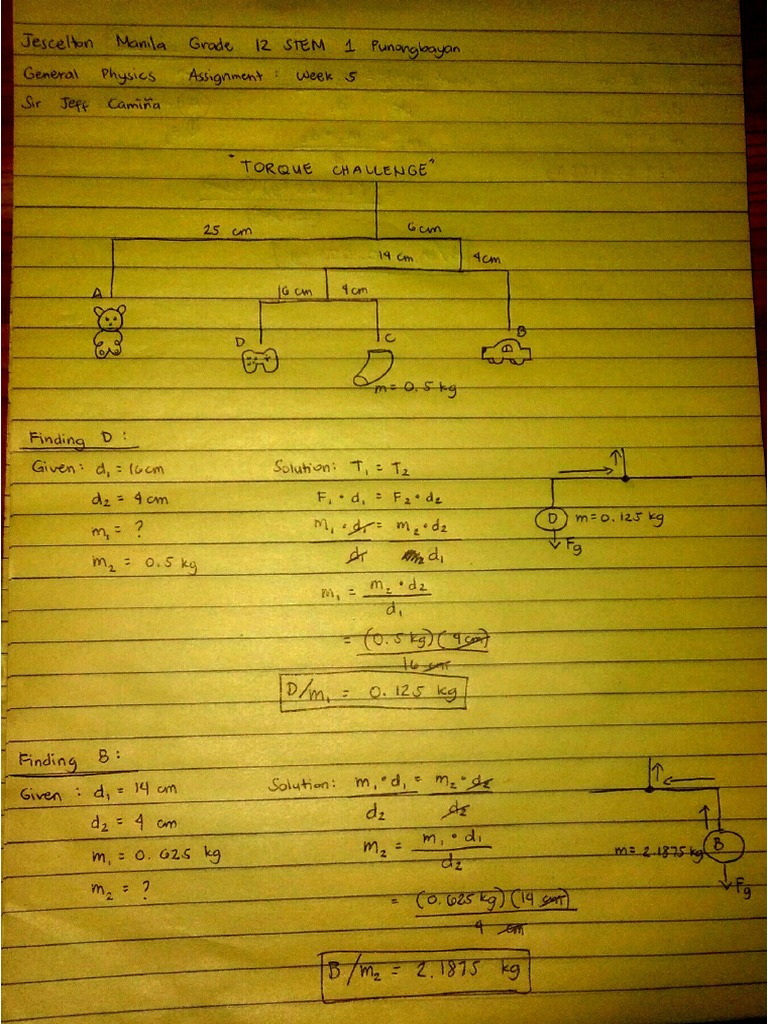 Jescelton Manila Grade 12 STEM 1 Punongbayan
General Physics Assignment: Week 5
Sir Jeff Camiña
"TORQUE CHALLENGE"
25 cm 6cm
14 cm 4cm
16 cm 4cm
A
D
C
B
m= 0.5 kg
Finding D:
Given: d₁ = 16cm
d₂ = 4cm
m₁ = ?
m₂ = 0.5 kg
Solution: T₁ = T₂
F₁ · d₁ = F₂ · d₂
m₁ · d₁ = m₂ · d₂
d₁ d₁
m₁ = m₂ · d₂
d₁
= (0.5 kg)(4cm)
16 cm
D/m₁ = 0.125 kg
D m=0.125 kg
Fg
Finding B:
Given: d₁ = 14 cm
d₂ = 4 cm
m₁ = 0.625 kg
m₂ = ?
Solution: m₁ · d₁ = m₂ · d₂
d₂ d₂
m₂ = m₁ · d₁
d₂
= (0.625 kg)(14 cm)
4 cm
B/m₂ = 2.1875 kg
m= 2.1875 kg B
Fg